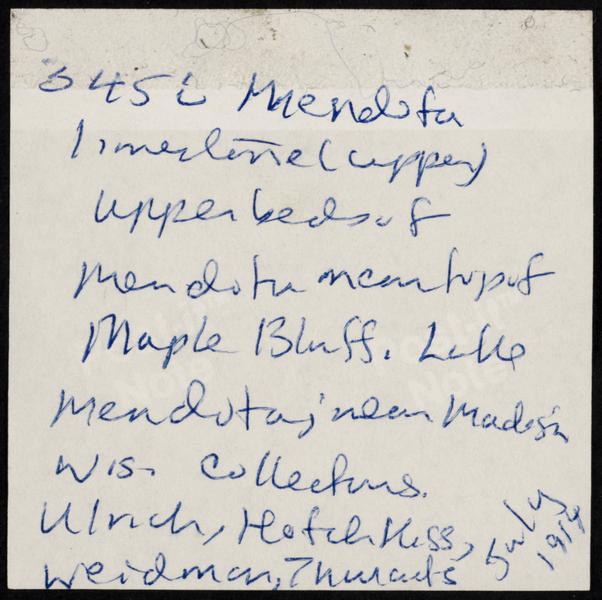 345i Mendota
limestone (upper)
upper beds of
Mendota near top of
Maple Bluff. Lake
Mendota, near Madison
Wis. Collectors.
Ulrich, Hotchkiss, July
Weidman, Thwaites 1914